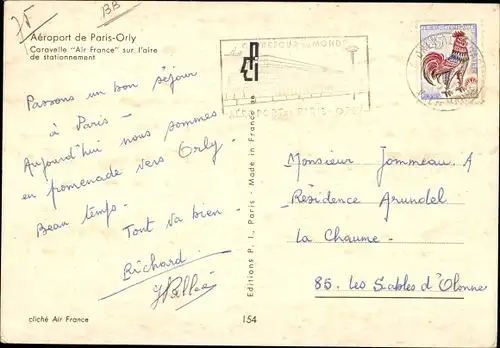 75
BB
Aéroport de Paris-Orly
Caravelle "Air France" sur l'aire
de stationnement
CARREFOUR DU MONDE
AÉROPORT PARIS-ORLY
Passons un bon séjour
à Paris -
Aujourd'hui nous sommes
en promenade vers Orly.
Beau temps.
Tout va bien -
Richard
Monsieur Jommeau. A
Résidence Arundel
La Chaume.
85. les Sables d'Olonne
Editions P. I., Paris - Made in France
cliché Air France
154